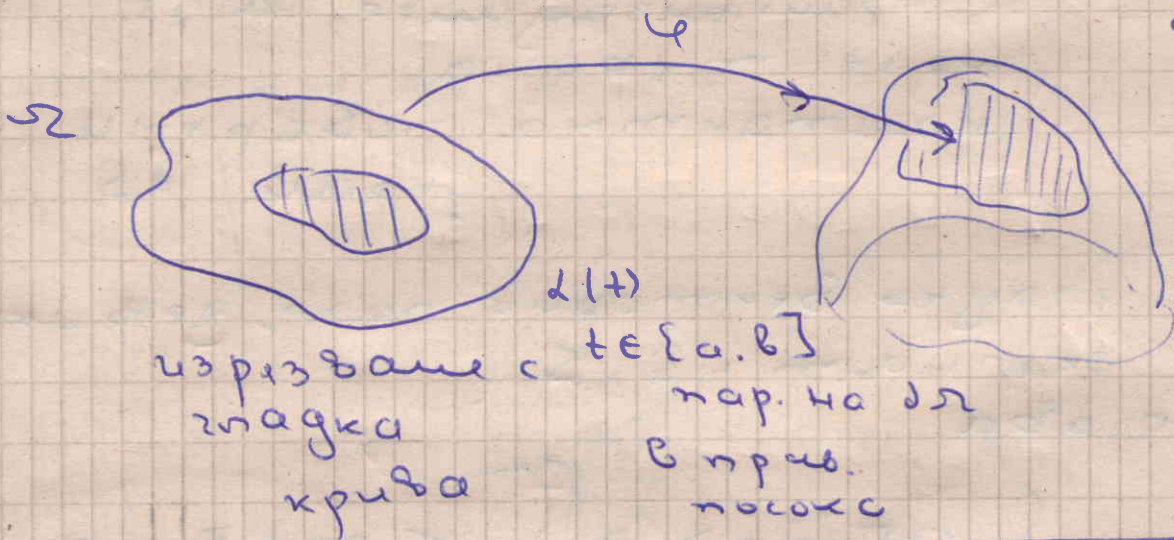 φ
Ω
α(t)
t ∈ [a, b]
изрязваме с
гладка
крива
пар. на ∂Ω
в прав.
посока